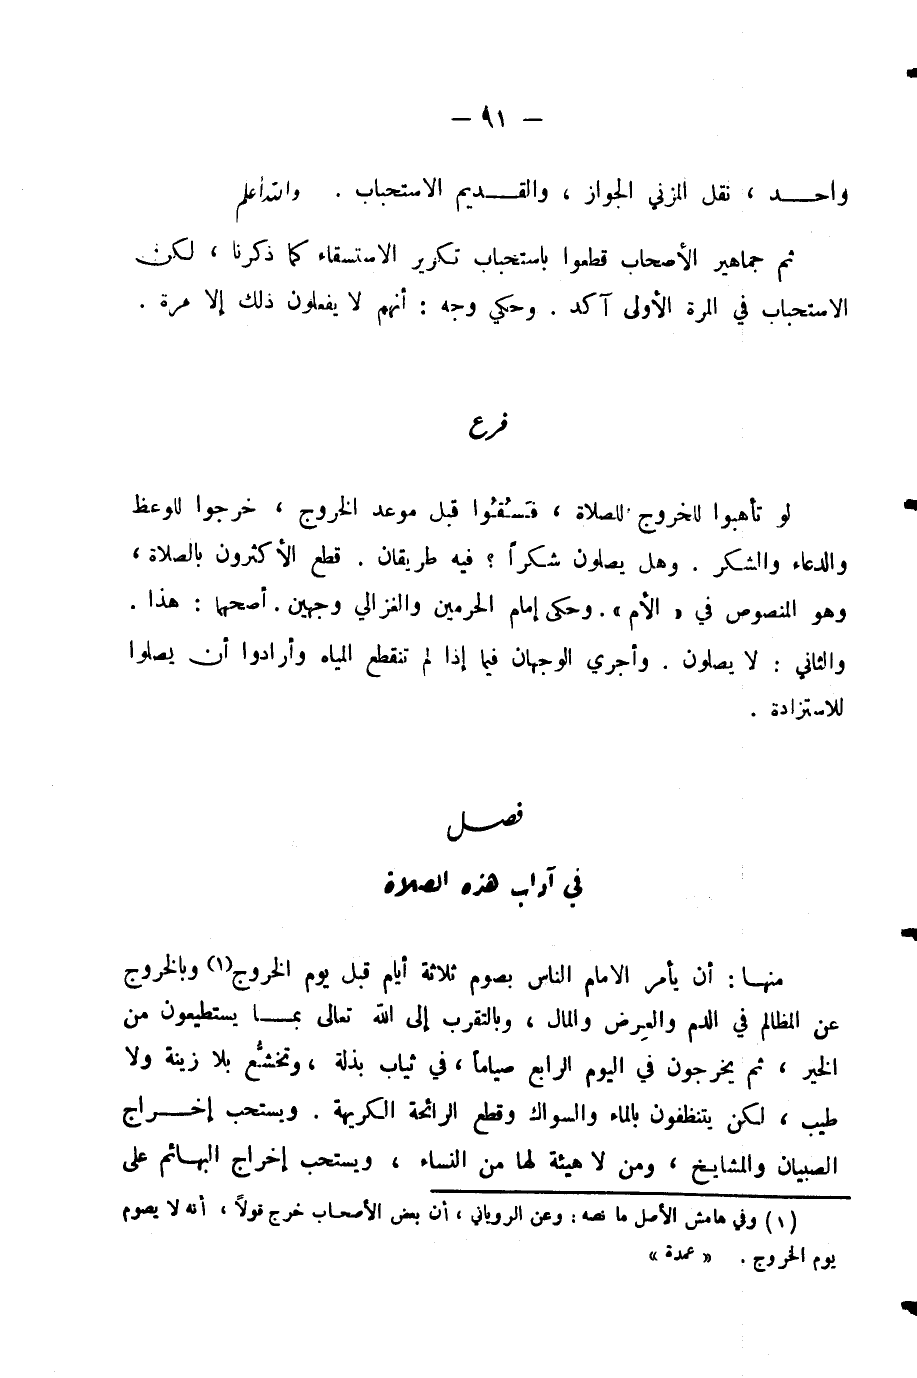 — ٩١ —
واحــد ، نقل المزني الجواز ، والقــديم الاستحباب . والله أعلم
ثم جماهير الأصحاب قطعوا باستحباب تكرير الاستسقاء كما ذكرنا ، لكن
الاستحباب في المرة الأولى آكد . وحكي وجه : أنهم لا يفعلون ذلك إلا مرة .
فرع
لو تأهبوا للخروج للصلاة ، فَسُقُوا قبل موعد الخروج ، خرجوا للوعظ
والدعاء والشكر . وهل يصلون شكراً ؟ فيه طريقان . قطع الأكثرون بالصلاة ،
وهو المنصوص في « الأم » . وحكى إمام الحرمين والغزالي وجهين . أصحها : هذا .
والثاني : لا يصلون . وأجري الوجهان فيما إذا لم تنقطع المياه وأرادوا أن يصلوا
للاستزادة .
فصــل
في آداب هذه الصلاة
منهــا : أن يأمر الامام الناس بصوم ثلاثة أيام قبل يوم الخروج(١) وبالخروج
عن المظالم في الدم والعِرض والمال ، وبالتقرب إلى الله تعالى بمــا يستطيعون من
الخير ، ثم يخرجون في اليوم الرابع صياماً ، في ثياب بذلة ، وتخشُّع بلا زينة ولا
طيب ، لكن يتنظفون بالماء والسواك وقطع الرائحة الكريهة . ويستحب إخــراج
الصبيان والمشايخ ، ومن لا هيئة لها من النساء ، ويستحب إخراج البهائم على
(١) وفي هامش الأصل ما نصه : وعن الروياني ، أن بعض الأصحاب خرج قولاً ، أنه لا يصوم
يوم الخروج . « عمدة »